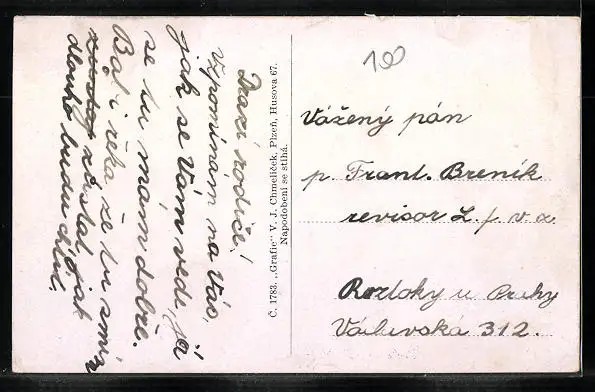 Drazí rodiče!
Vzpomínám na Vás,
jak se Vám vede, já
se tu mám dobře.
Bať i řeka že tu smím
zůstat, jak
dlouho budu chtít.
Č. 1783. „Grafie“ V. J. Chmelíček, Plzeň, Husova 67.
Napodobení se stíhá.
100
Vážený pán
p. Frant. Breník
revisor L. f. v. a
Roztoky u Prahy
Václavská 312.